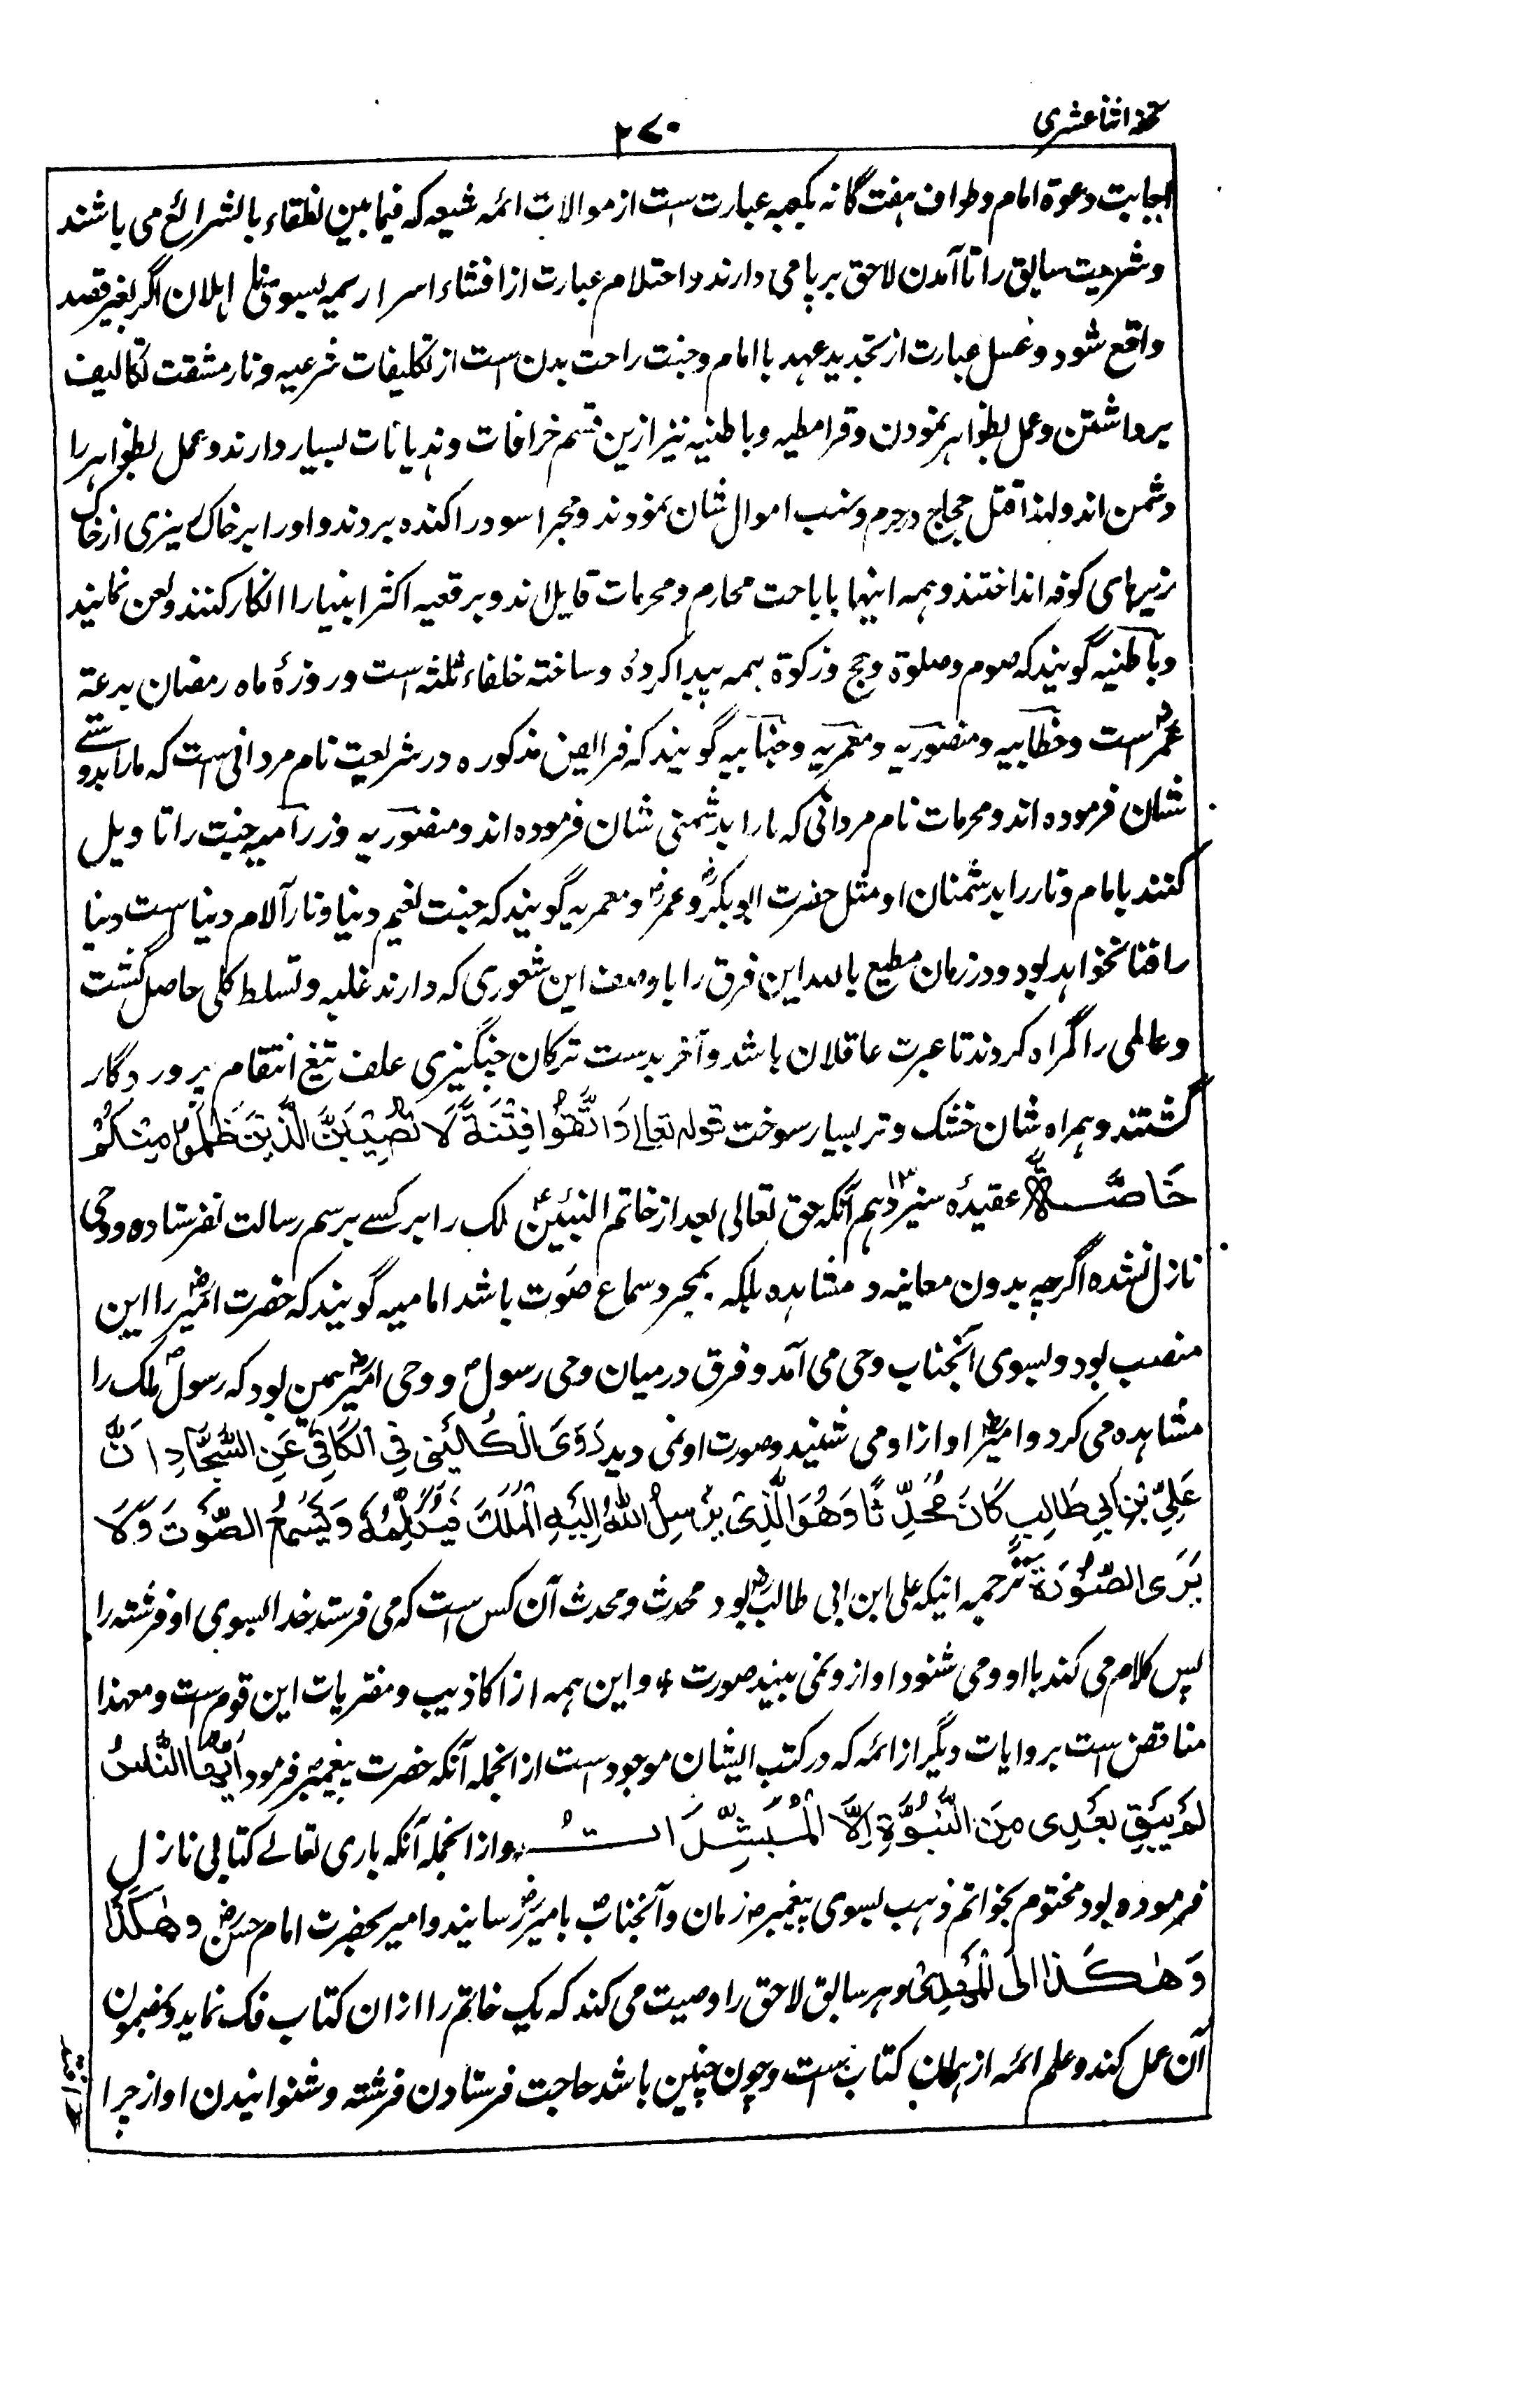 تحفہ اثنا عشری
۲۷۰
اجابت دعوة امام و طواف ہفت گانہ بکعبہ عبارت ست از موالات ائمہ شیعہ کہ فیما بین نطقاء بالشرائع می باشند
و شریعت سابق را تا آمدن لاحق برپا می دارند و احتلام عبارت از افشاء اسرار سمیہ بسوی نا اہلان اگر بغیر قصد
واقع شود و غسل عبارت از تجدید عہد با امام و جنت راحت بدن است از تکلیفات شرعیہ و نار مشقت تکالیف
برداشتن و عمل بظواہر نمودن و قرامطیہ و باطنیہ نیز ازین قسم خرافات و ہذیانات بسیار دارند و عمل بظواہر را
دشمن اند و لہذا قتل حجاج در حرم و نہب اموال شان نمودند و حجر اسود را کندہ بردند و او را بر خاک ریزی از خاک
ریزیهای کوفہ انداختند و ہمہ اینها باباحت محارم و محرمات قایل اند و برقعیہ اکثر انبیا را انکار کنند و لعن نمایند
و باطنیہ گویند کہ صوم و صلوة و حج و زکوة ہمہ پیدا کردہ و ساختہ خلفاء ثلثہ است و روزۂ ماہ رمضان بدعتہ
عمرؓ است و خطابیہ و منصوریہ و معمریہ و جنابیہ گویند کہ فرایض مذکورہ در شریعت نام مردانی است کہ ما را بدوستی
شان فرمودہ اند و محرمات نام مردانی کہ ما را بدشمنی شان فرمودہ اند و منصوریہ و زرامیہ جنت را تاویل
کنند بامام و نار را بدشمنان او مثل حضرت ابوبکرؓ و عمرؓ و معمریہ گویند کہ جنت نعیم دنیا و نار آلام دنیا ست و دنیا
را فنا نخواہد بود و در زمان مطیع باللہ این فرق را با وصف این شعوری کہ دارند غلبہ و تسلط کلی حاصل گشت
و عالمی را گمراہ کردند تا عبرت عاقلان باشد و آخر بدست ترکان چنگیزی علف تیغ انتقام پروردگار
گشتند و ہمراہ شان خشک و تر بسیار سوخت قولہ تعالے وَاتَّقُوْا فِتْنَةً لَا تُصِیْبَنَّ الَّذِیْنَ ظَلَمُوْا مِنْکُمْ
خَاصَّةً عقیدۂ سیزدہم ۱۳ آنکہ حق تعالی بعد از خاتم النبیینؐ ملک را بر کسے برسم رسالت نفرستادہ و وحی
نازل نشدہ اگرچہ بدون معاینہ و مشاہدہ بلکہ بمجرد سماع صوت باشد امامیہ گویند کہ حضرت امیرؓ را این
منصب بود و بسوی آنجناب وحی می آمد و فرق درمیان وحی رسولؐ و وحی امیرؓ ہمین بود کہ رسولؐ ملک را
مشاہدہ می کرد و امیرؓ آواز او می شنید و صورت او نمی دید رَوَی الْکُلَیْنِی فِی الْکَافِی عَنِ السَّجَّادِ اَنَّ
عَلِیَّ بْنَ اَبِی طَالِبٍ کَانَ مُحَدَّثًا وَهُوَ الَّذِیْ یُرْسِلُ اللهُ اِلَیْهِ الْمَلَكَ فَیُکَلِّمُهُ وَیَسْمَعُ الصَّوْتَ وَلَا
یَرَی الصُّوْرَةَ ترجمہ اینکہ علی ابن ابی طالبؓ بود محدث و محدث آن کس ست کہ می فرستد خدا بسوی او فرشتہ را
پس کلام می کند با او و می شنود آواز و نمی بیند صورت و این ہمہ از اکاذیب و مفتریات این قوم ست و معہذا
مناقض ست بروایات دیگر از ائمہ کہ در کتب ایشان موجود است از انجملہ آنکہ حضرت پیغمبرؐ فرمود اَیُّهَا النَّاسُ
لَمْ یَبْقَ بَعْدِی مِنَ النُّبُوَّةِ اِلَّا الْمُبَشِّرَاتُ و از انجملہ آنکہ باری تعالے کتابی نازل
فرمودہ بود مختوم بخواتم ذہب بسوی پیغمبر زمان و آنجنابؐ بامیرؓ رسانید و امیر بحضرت امام حسنؓ وهٰکَذَا
وَهٰکَذَا اِلَی الْمَهْدِی و ہر سابق لاحق را وصیت می کند کہ یک خاتم را ازان کتاب فک نماید و بمضمون
آن عمل کند و علم ائمہ از ہمان کتاب ست و چون چنین باشد حاجت فرستادن فرشتہ و شنوانیدن آواز چرا